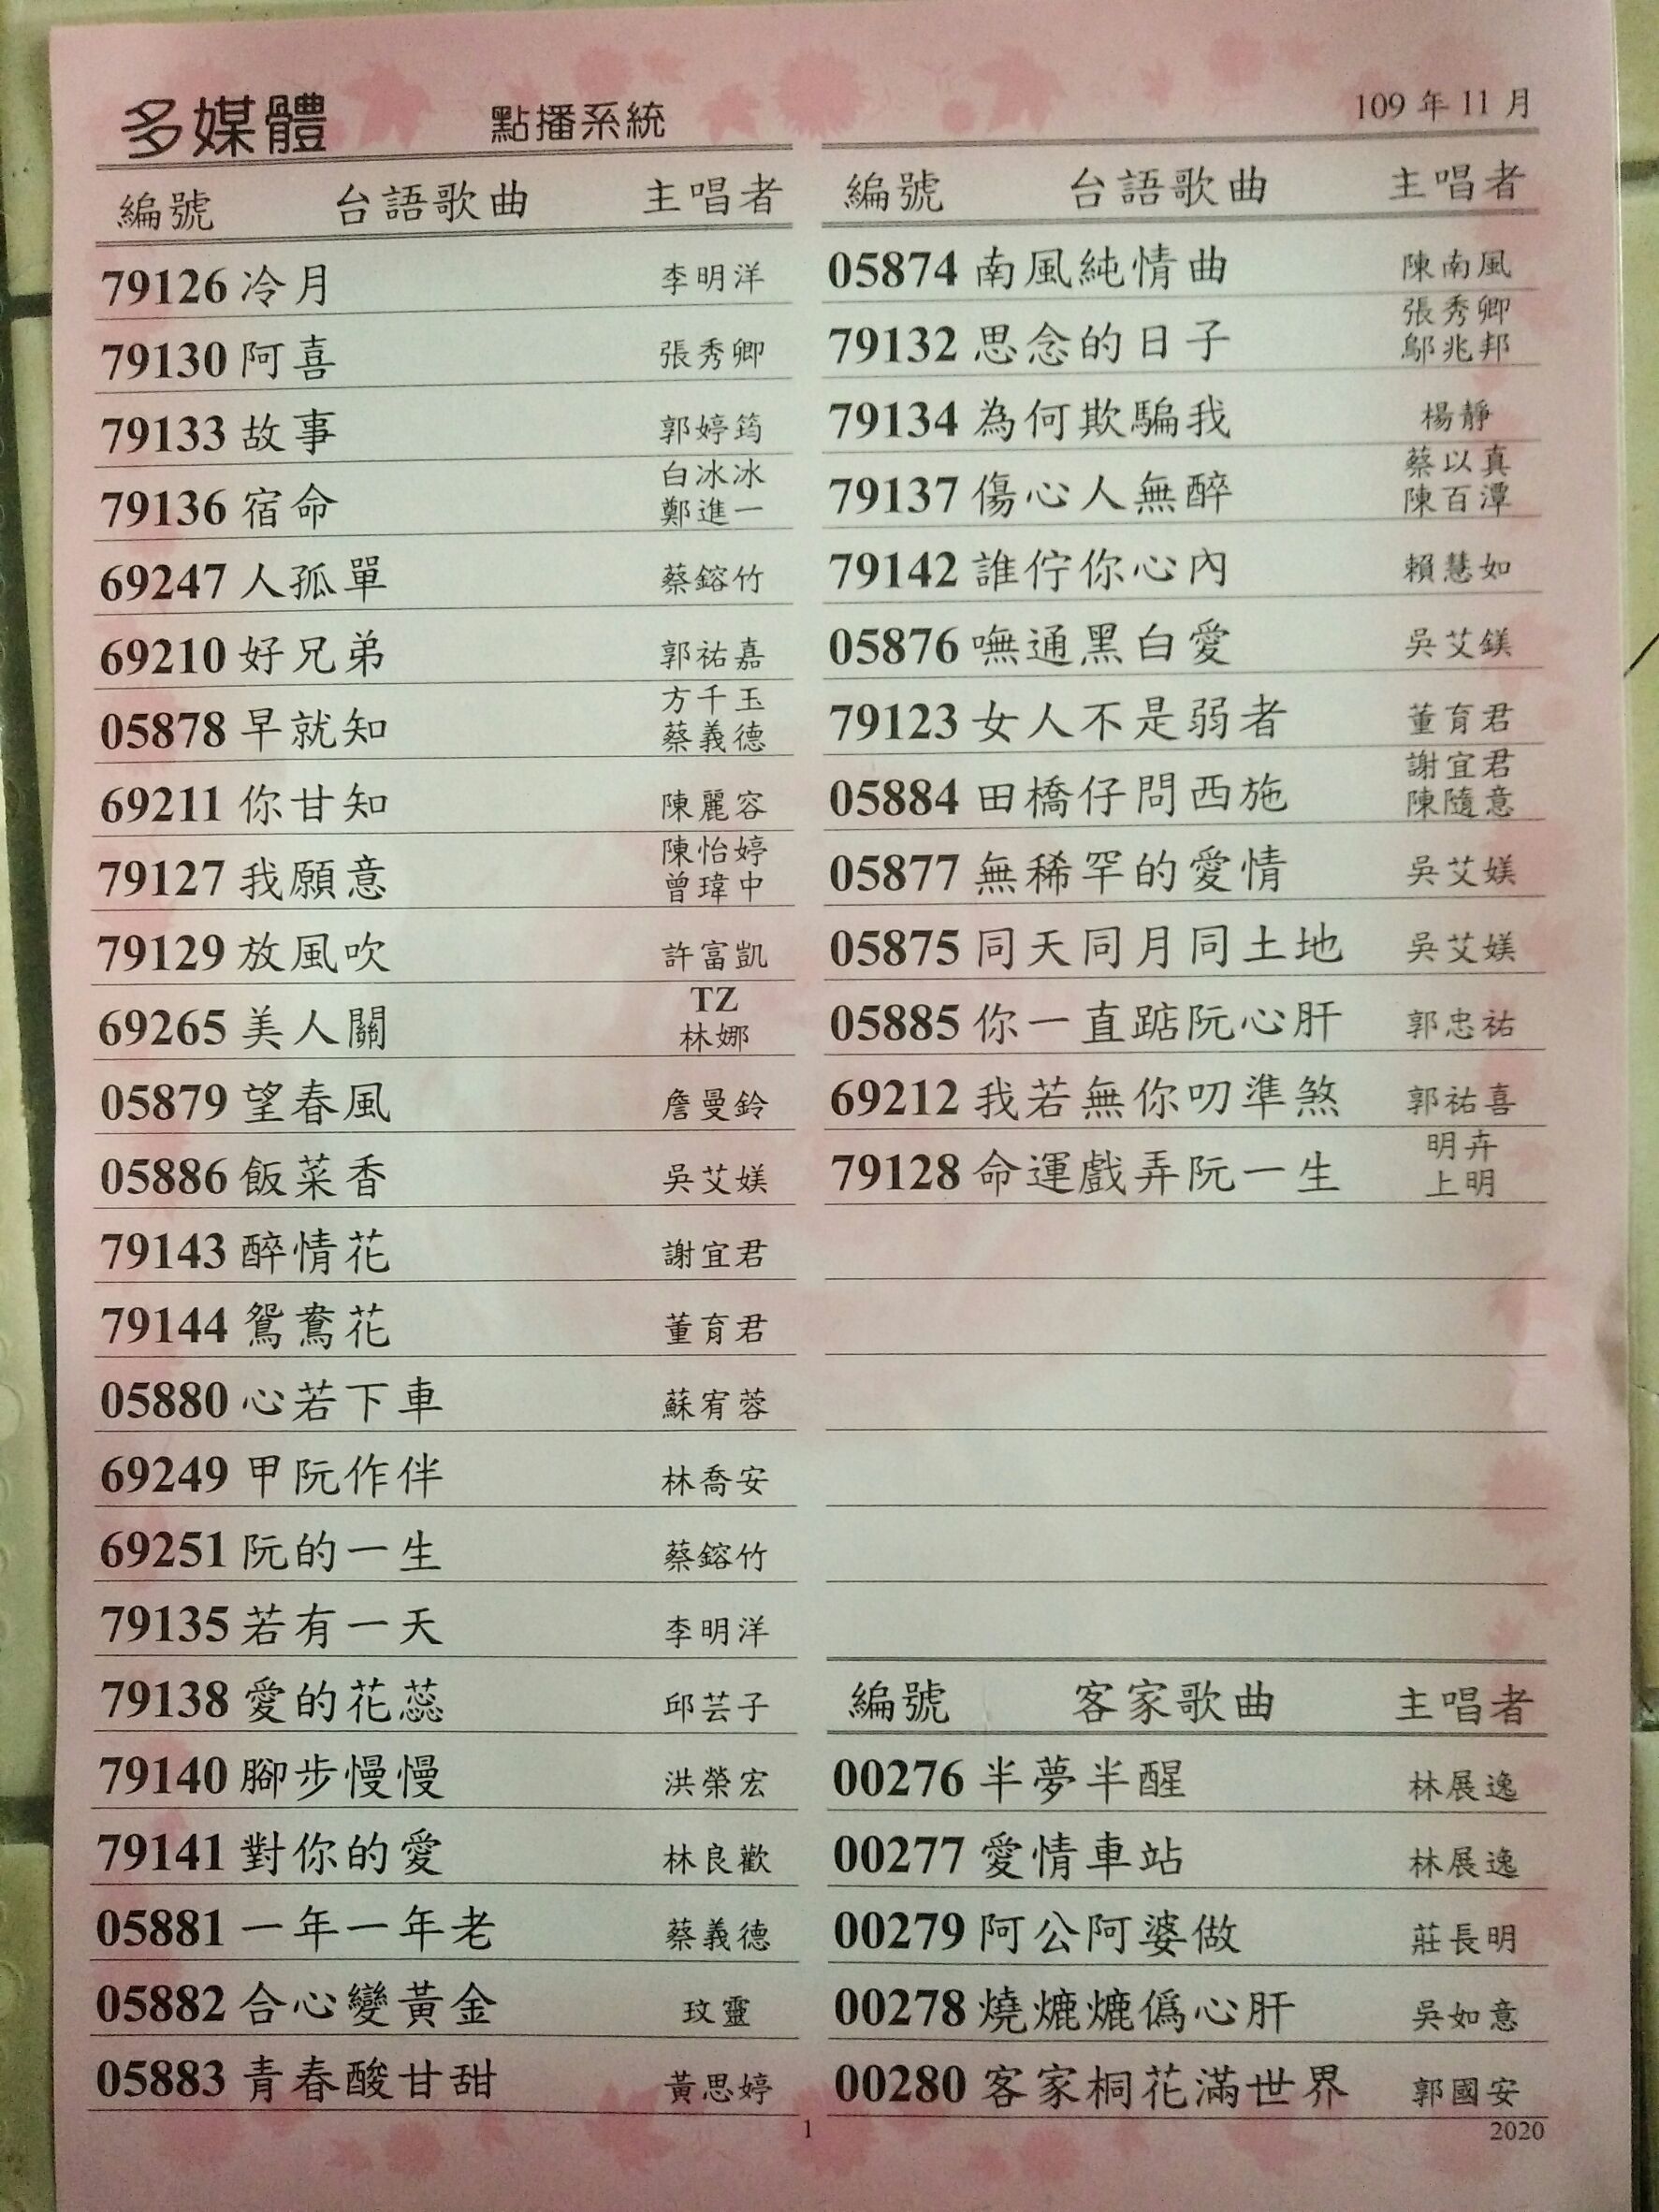 多媒體 點播系統
109年11月
編號 台語歌曲 主唱者
79126 冷月 李明洋
79130 阿喜 張秀卿
79133 故事 郭婷筠
79136 宿命 白冰冰 鄭進一
69247 人孤單 蔡鎔竹
69210 好兄弟 郭祐嘉
05878 早就知 方千玉 蔡義德
69211 你甘知 陳麗容
79127 我願意 陳怡婷 曾瑋中
79129 放風吹 許富凱
69265 美人關 TZ 林娜
05879 望春風 詹曼鈴
05886 飯菜香 吳艾媄
79143 醉情花 謝宜君
79144 鴛鴦花 董育君
05880 心若下車 蘇宥蓉
69249 甲阮作伴 林喬安
69251 阮的一生 蔡鎔竹
79135 若有一天 李明洋
79138 愛的花蕊 邱芸子
79140 腳步慢慢 洪榮宏
79141 對你的愛 林良歡
05881 一年一年老 蔡義德
05882 合心變黃金 玟靈
05883 青春酸甘甜 黃思婷
編號 台語歌曲 主唱者
05874 南風純情曲 陳南風
79132 思念的日子 張秀卿 鄔兆邦
79134 為何欺騙我 楊靜
79137 傷心人無醉 蔡以真 陳百潭
79142 誰佇你心內 賴慧如
05876 嘸通黑白愛 吳艾鎂
79123 女人不是弱者 董育君
05884 田橋仔問西施 謝宜君 陳隨意
05877 無稀罕的愛情 吳艾媄
05875 同天同月同土地 吳艾媄
05885 你一直踮阮心肝 郭忠祐
69212 我若無你叨準煞 郭祐喜
79128 命運戲弄阮一生 明卉 上明
編號 客家歌曲 主唱者
00276 半夢半醒 林展逸
00277 愛情車站 林展逸
00279 阿公阿婆做 莊長明
00278 燒熝熝僞心肝 吳如意
00280 客家桐花滿世界 郭國安
1
2020